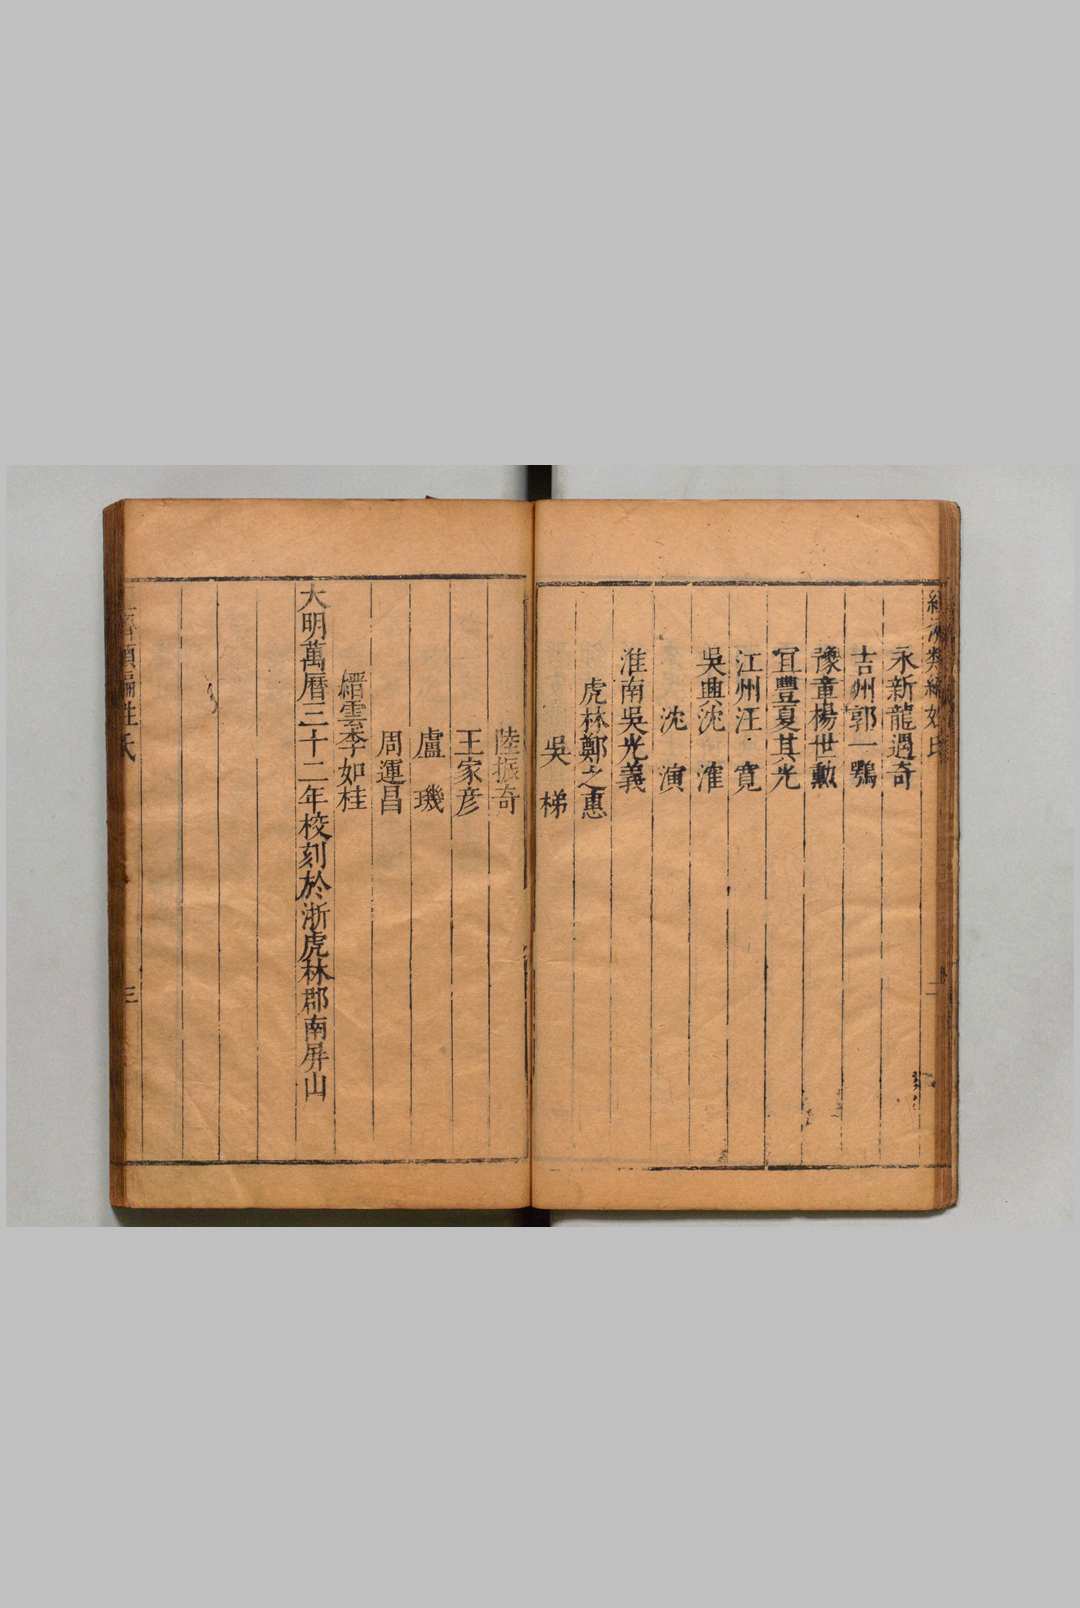 經濟類編姓氏
二
永新龍遇奇
吉州郭一鶚
豫章楊世勳
宜豐夏其光
江州汪 寛
吳興沈 㴶
沈 演
淮南吳光義
虎林鄭之惠
吳 梯
陸振奇
王家彦
盧 璣
周運昌
縉雲李如桂
大明萬曆三十二年校刻於浙虎林郡南屏山
類編姓氏
三